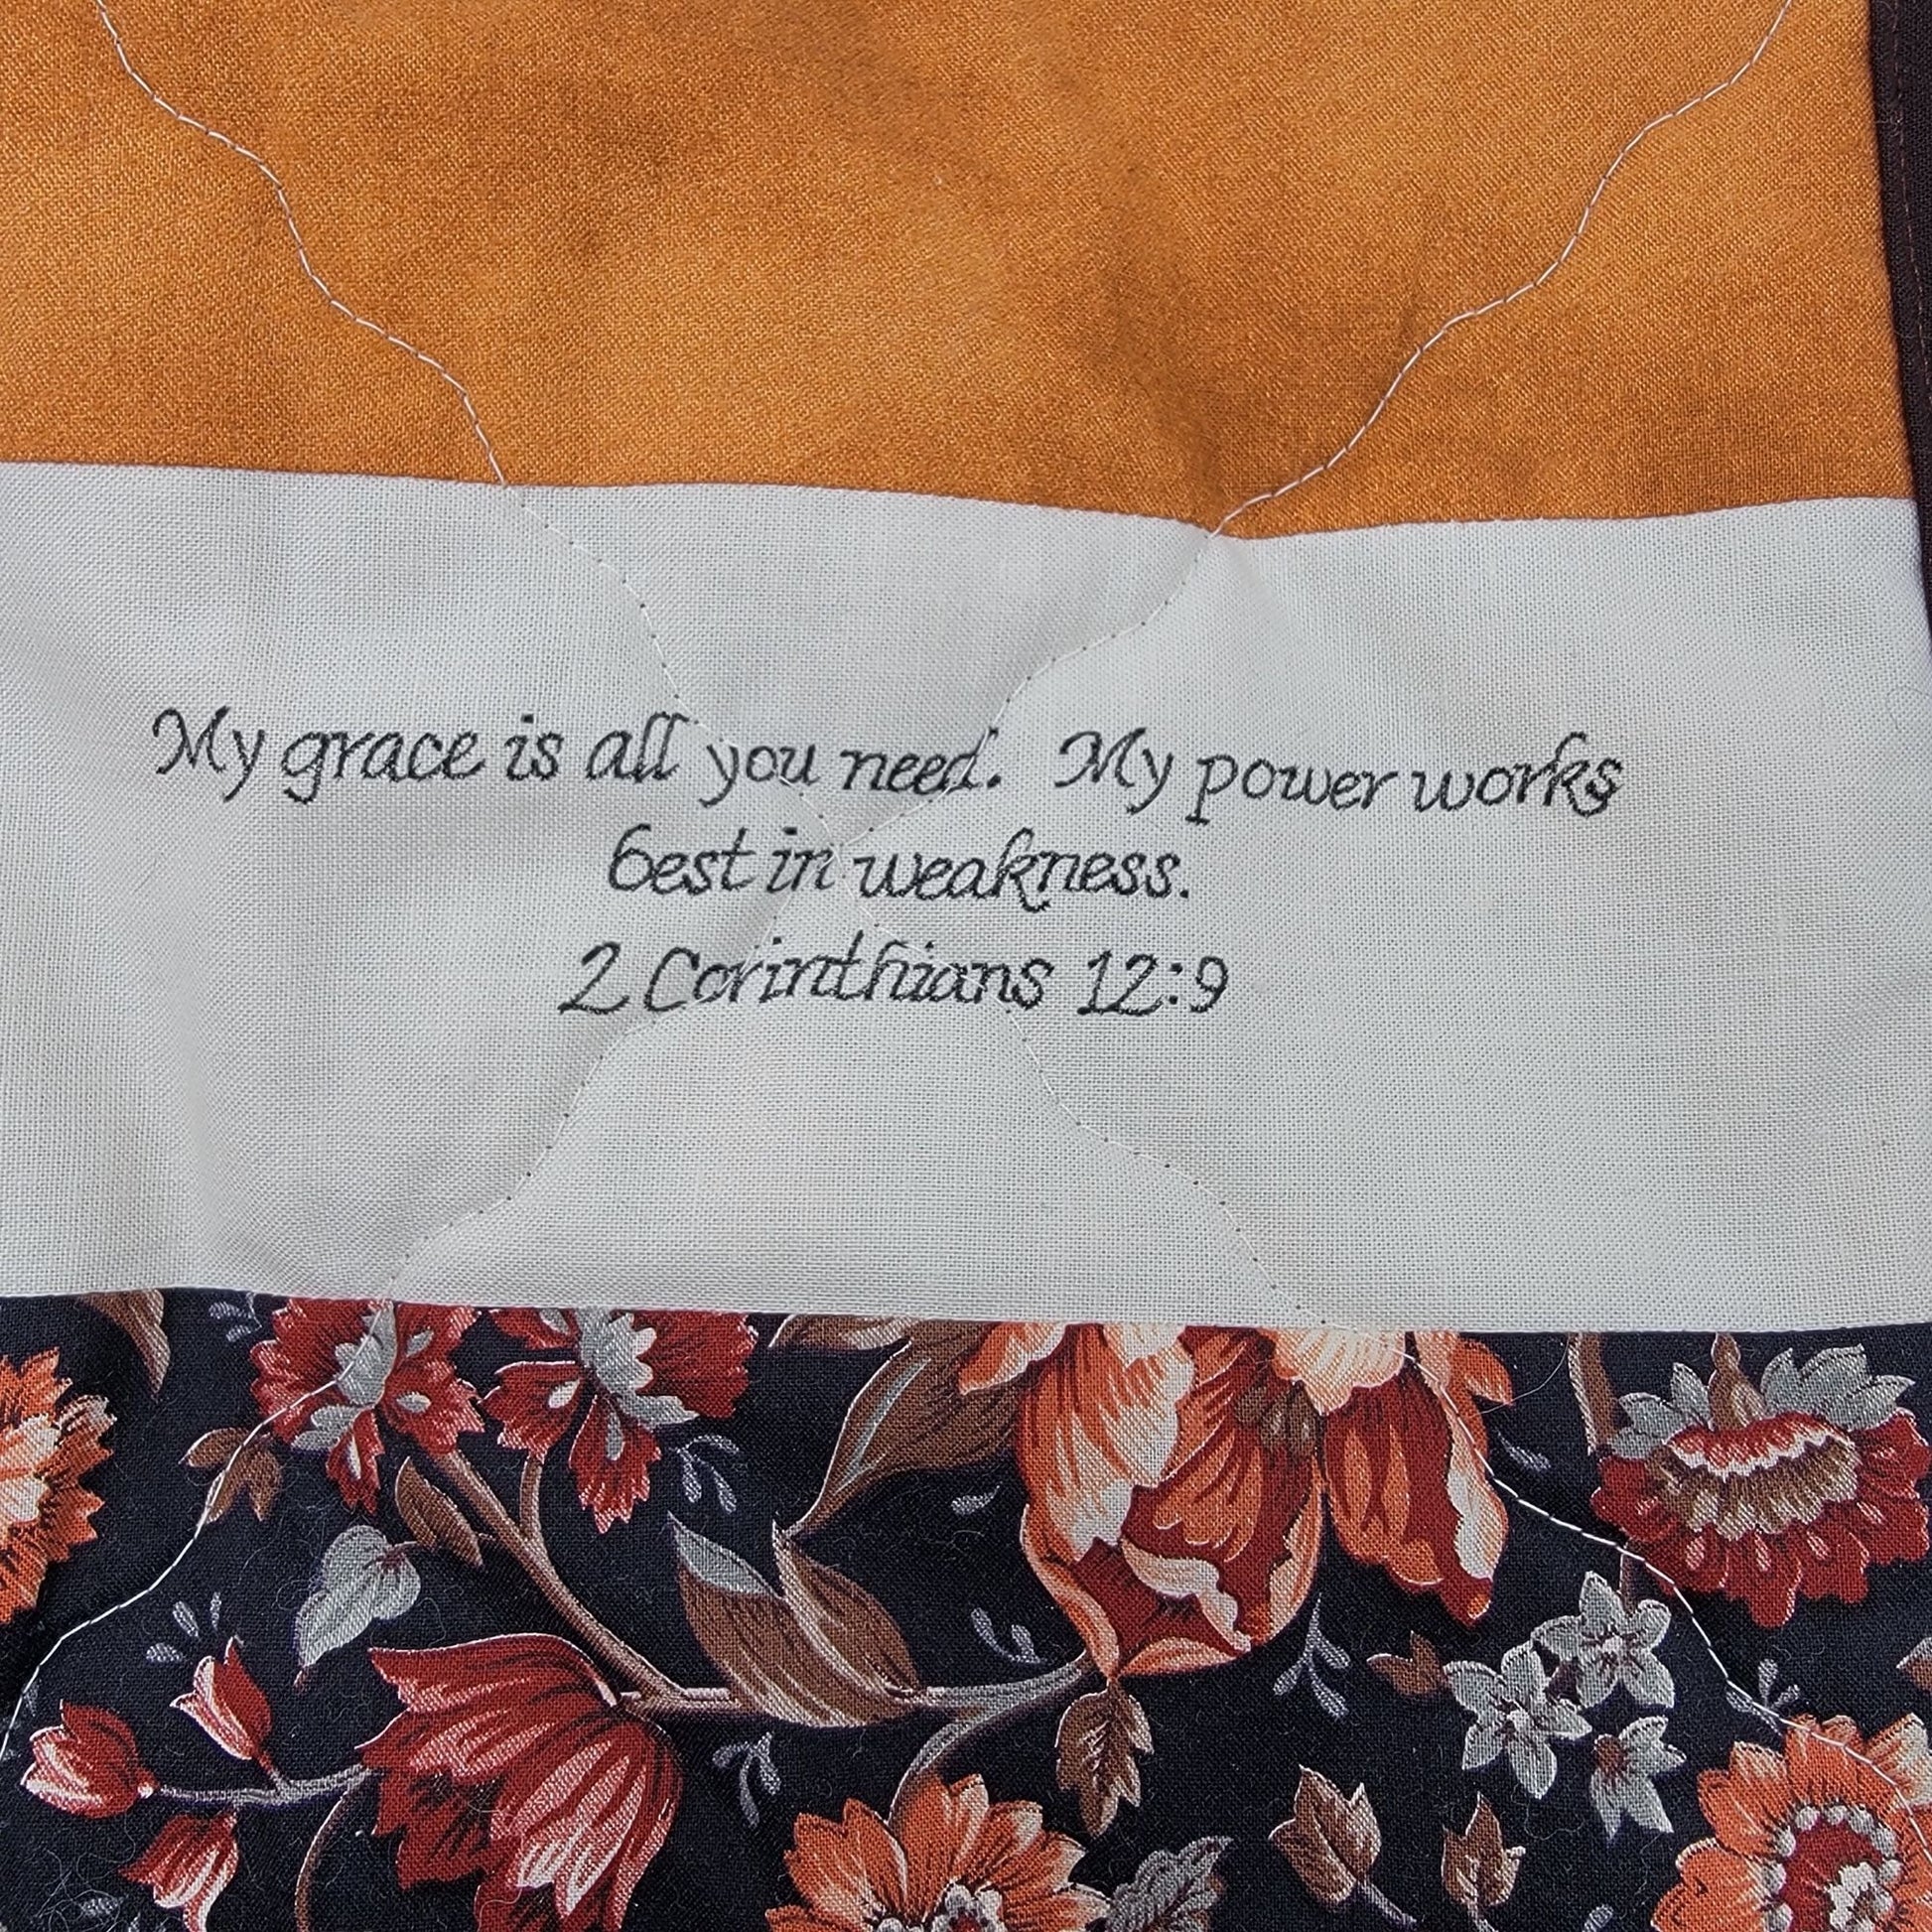 My grace is all you need. My power works
best in weakness.
2 Corinthians 12:9